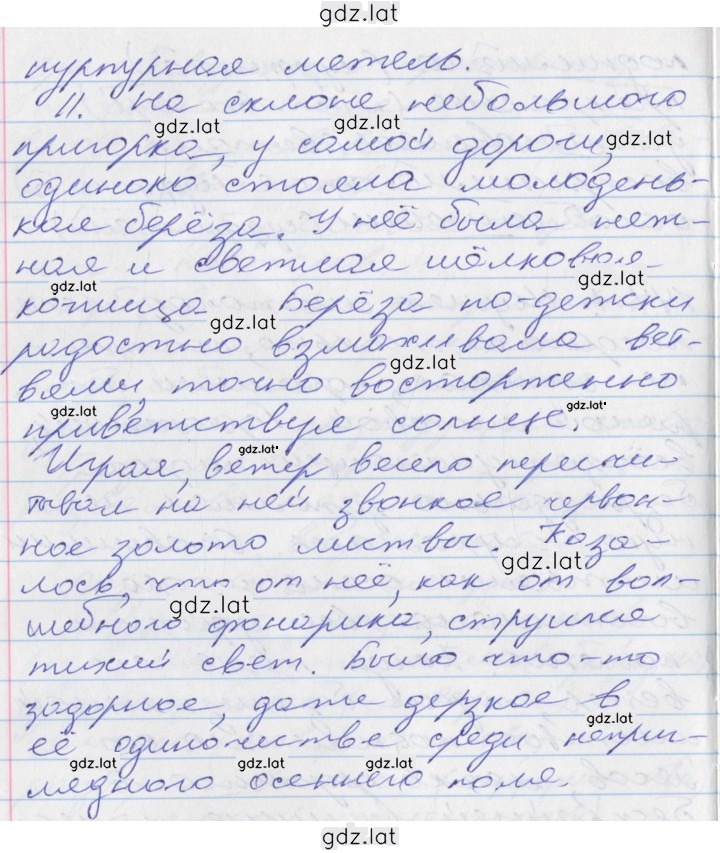 gdz.lat
пурпурная метель.
II. На склоне небольшого
gdz.lat gdz.lat
пригорка, у самой дороги,
gdz.lat
одиноко стояла молодень-
кая берёза. У неё была неж-
ная и светлая шёлковая
gdz.lat gdz.lat
косица. Берёза по-детски
gdz.lat
радостно взмахивала вет-
gdz.lat
вями, точно восторженно
gdz.lat gdz.lat
приветствуя солнце.
gdz.lat
Играя, ветер весело пересчи-
тывал на ней звонкое червон-
ное золото листвы. Каза-
gdz.lat
лось, что от неё, как от вол-
gdz.lat
шебного фонарика, струился
тихий свет. Было что-то
задорное, даже дерзкое в
gdz.lat
её одиночестве среди непри-
gdz.lat gdz.lat gdz.lat
глядного осеннего поля.
gdz.lat